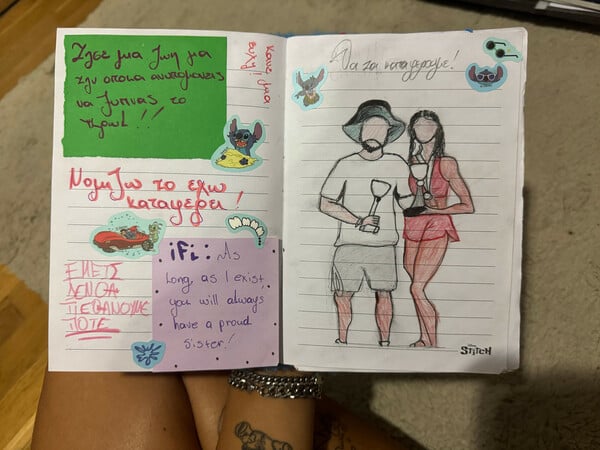 Ζήσε μια ζωή για
την οποία ανυπομονείς
να ξυπνάς το
πρωί!!
κάνε μια
ευχή!
Νομίζω το έχω
καταφέρει!
ΕΜΕΙΣ
ΔΕΝ ΘΑ
ΠΕΘΑΝΟΥΜΕ
ΠΟΤΕ
ifi: As
long as I exist
you will always
have a proud
sister!
Θα τα καταφέρουμε!
Disney
STITCH